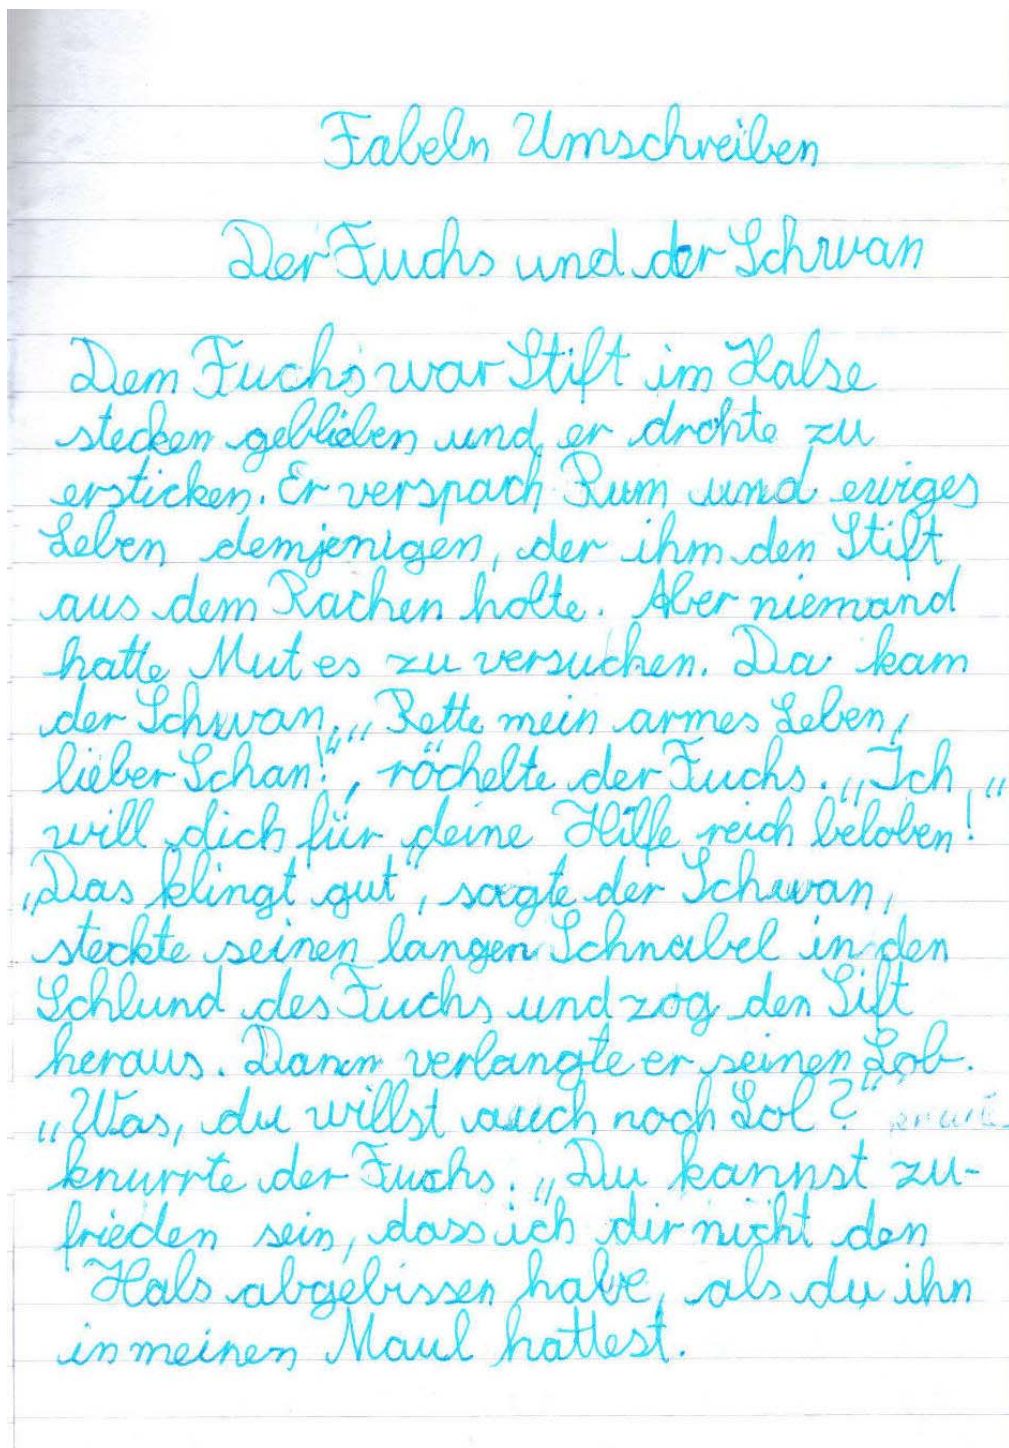 Fabeln Umschreiben
Der Fuchs und der Schwan
Dem Fuchs war Stift im Halse
stecken geblieben und er drohte zu
ersticken. Er verspach Rum und ewiges
Leben demjenigen, der ihm den Stift
aus dem Rachen holte. Aber niemand
hatte Mut es zu versuchen. Da kam
der Schwan. „Rette mein armes Leben,
lieber Schan!“, röchelte der Fuchs. „Ich
will dich für deine Hilfe reich beloben!“
„Das klingt gut“, sagte der Schwan,
steckte seinen langen Schnabel in den
Schlund des Fuchs und zog den Sift
heraus. Dann verlangte er seinen Lob.
„Was, du willst auch noch Lol?“
knurrte der Fuchs. „Du kannst zu-
frieden sein, dass ich dir nicht den
Hals abgebissen habe, als du ihn
in meinen Maul hattest.